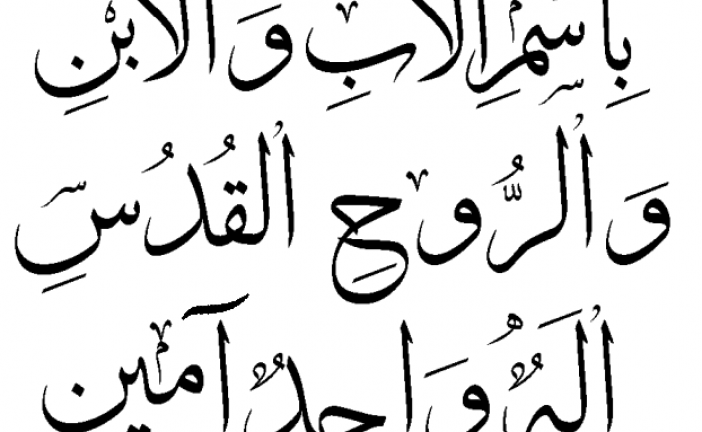 بِاسْمِ الْآبِ وَالْابْنِ
وَالرُّوحِ الْقُدُسِ
الْإِلَهُ وَاحِدٌ آمِين